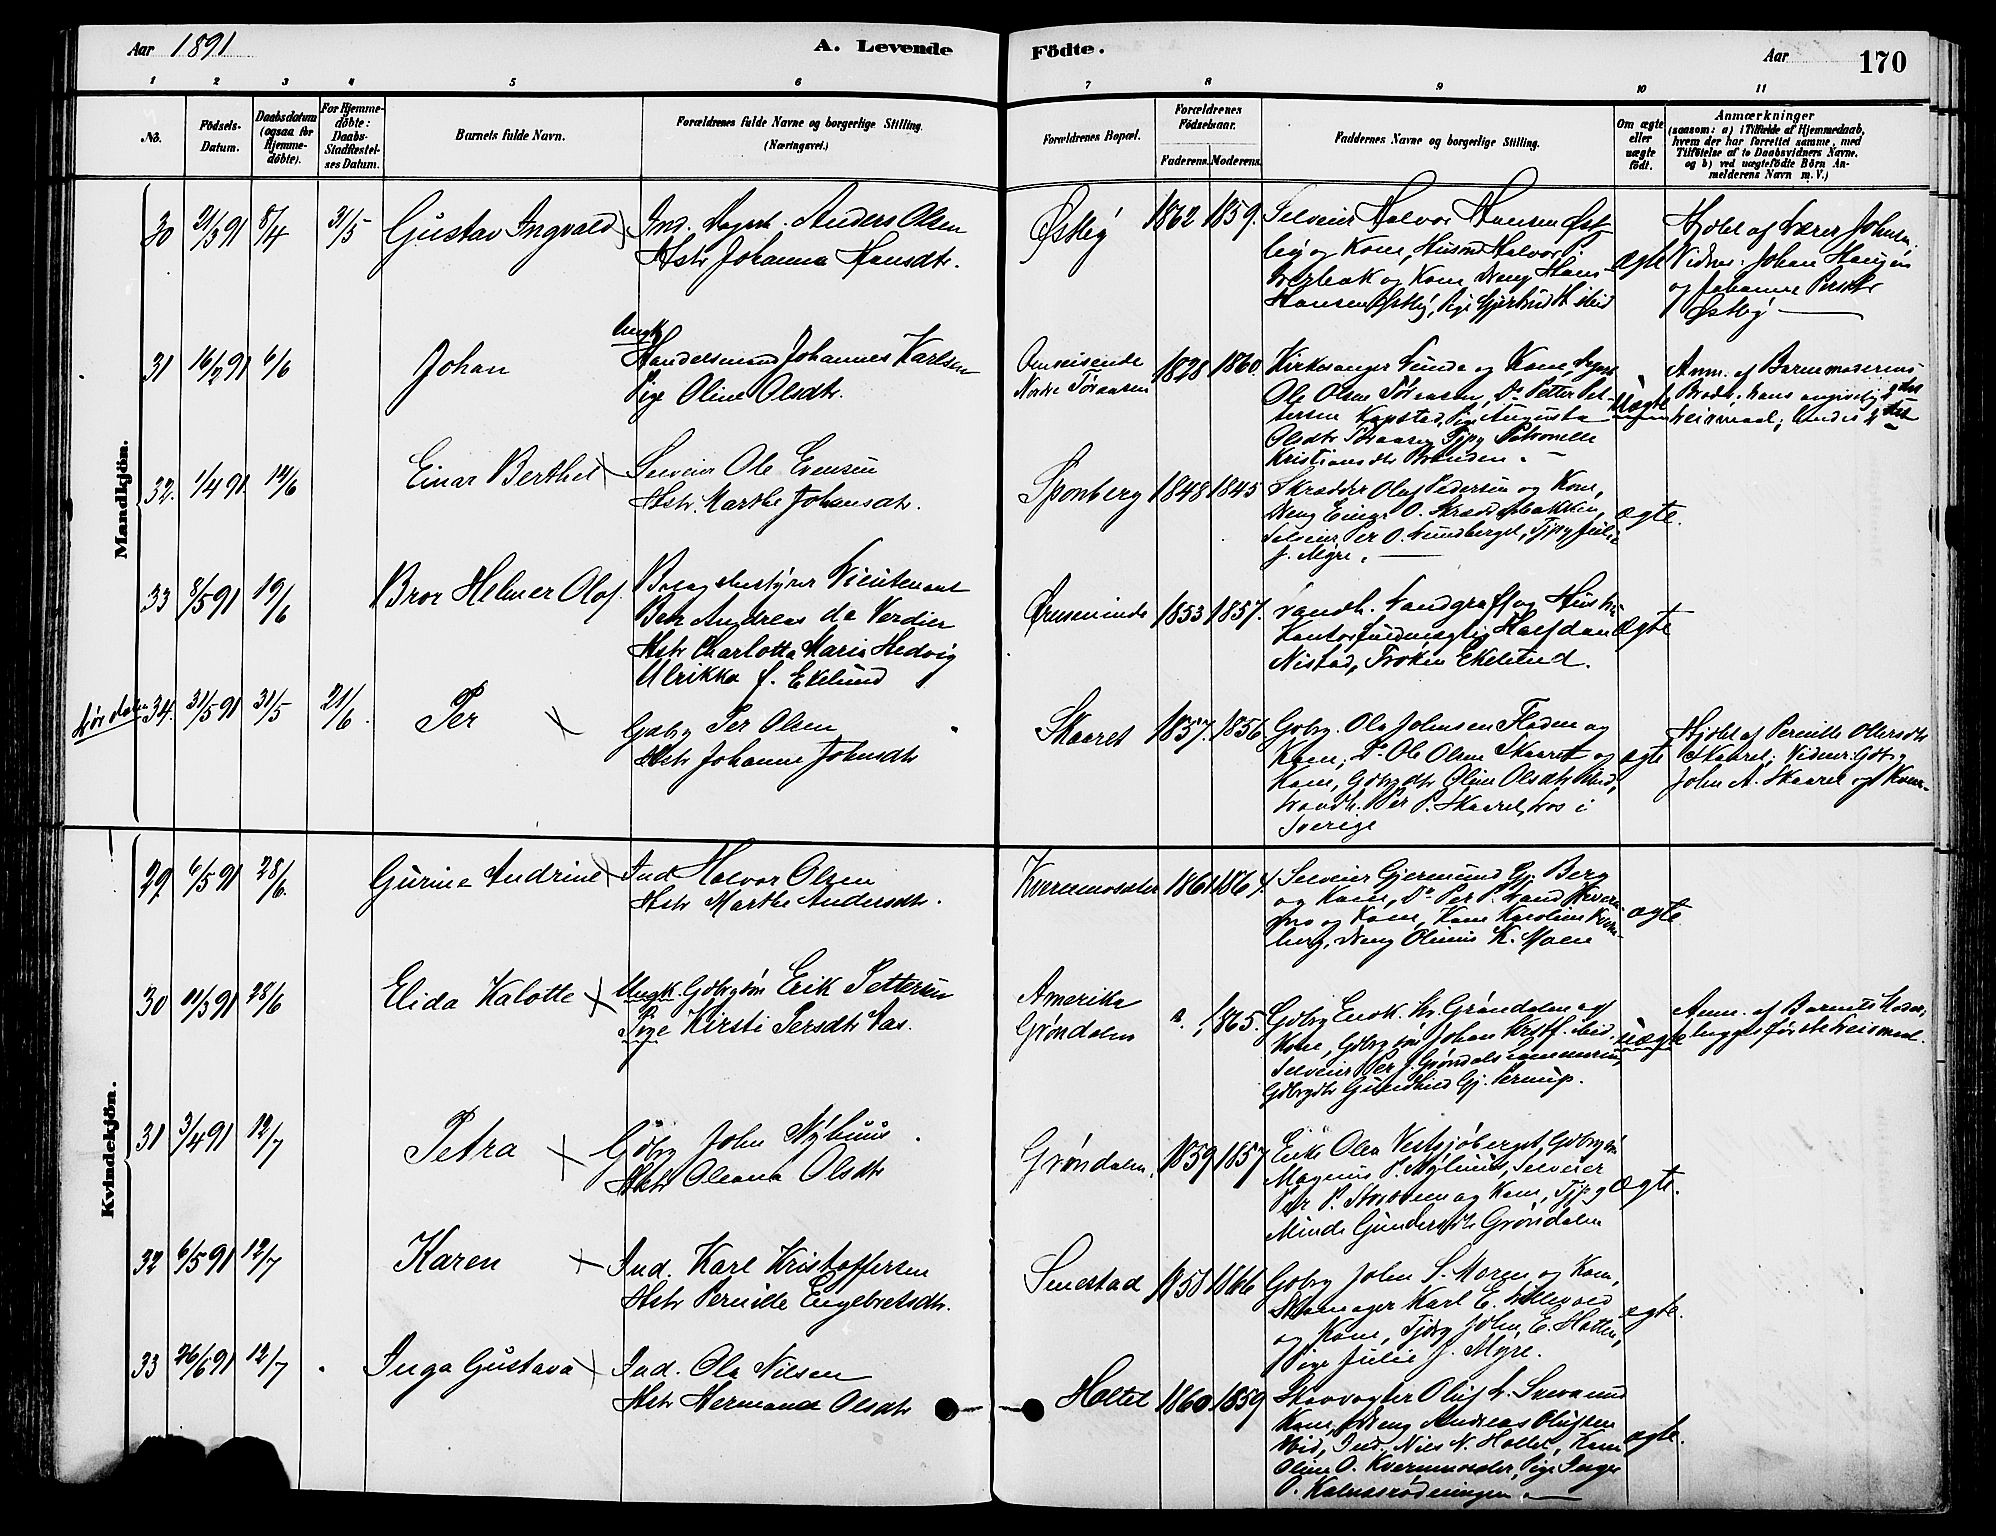 Aar 1891
A. Levende
Fødte.
Aar
170
1 2 3 4 5 6 7 8 9 10 11
No.
Födsels-Datum.
Daabsdatum (ogsaa for Hjemme-döbte).
For Hjemme-döbte: Daabs-Stadfæstel-ses Datum.
Barnets fulde Navn.
Forældrenes fulde Navne og borgerlige Stilling. (Næringsvei.)
Forældrenes Bopæl.
Forældrenes Födselsaar.
Faderens. Moderens.
Faddernes Navne og borgerlige Stilling.
Om ægte eller uægte födt.
Anmærkninger
(saasom: a) i Tilfælde af Hjemmedaab,
hvem der har forrettet samme, med
Tilföielse af to Daabsvidners Navne,
og b) ved uægtefödte Börn An-
melderens Navn m. V.)
Mandkjön.
30 21/3 91 8/4 31/5 Gustav Ingvald Ind. Anders Olsen
Hstr Johanna Hansdtr.
Østby 1862 1859. Selveier Halvor Hansen Øst-
by og Kone, Halvor
og Kone, Ung Hans
Hansen Østby, Pige
ægte
Hjdbt af Lærer Johnsen.
Vidner: Johan Hansen
og Johanne Persdtr
Østby
31 16/2 91 6/6 Johan Ungk.
Handelsmand Johannes Karlsen
Pige Oline Olsdtr.
Omreisende
Nordre Töraasen 1828 1860. Kirkesanger Lunde og Kone,
Ole Olsen Töraasen, Do Petter Pet-
tersen Kopstad, Pige Augusta
Olsdtr Töraasen, Tjpg Petronelle
Kristiansdtr Branden.
uægte
Anm. af Barnemoderens
Broder, hans angivelig 2det
Leiermaal; hendes 2det
32. 1/4 91. 14/6 Einar Berthel Selveier Ole Evensen
Hstr. Marthe Johansdtr.
Sponberg 1848 1845 Skrædder Olaf Pedersen og Kone,
Ung Einar O. Skrædderbakken,
Selveier Per O. Sundberget, Tjpg Julie
J. Myre.
ægte.
33 8/5 91 19/6 Bror Helmer Olof. Lieutenant
Andreas de Verdier
Hstr Charlotta Maria Hedvig
Ulrikka f. Eklund
1853 1857. Landh. Landgraff og Hustru
Kontorfuldmægtig Halfdan
Nistad, Frøken Ekelund.
ægte
34. 31/5 91 31/5 21/6. Per Gdbrg Per Olsen
Hstr Johanne Johnsdtr
Skaaret 1857. 1856 Gdbrg. Ole Johnsen Fladen og
Kone, Do Ole Olsen Skaaret og
Kone, Gdbrgdtr Oline Olsdtr
Landh. Per P. Skaaret, bos i
Sverige
ægte
Hjdbt af Pernille Olsdtr
Skaaret; Vidner: Gdbrg
John A. Skaaret og Kone.
Kvindekjön.
29 6/5 91 28/6 Gurine Andrine Ind Halvor Olsen
Hstr Marthe Andersdtr.
Kvernmosæter 1861 1864. Selveier Gjermund Gj. Berg
og Kone, Do Per P. Kvern-
og Kone, Kone Karoline Kvern-
berg, Ung Olinus K. Moen
ægte
30 11/3 91 28/6 Elida Kalotte Ungk. Gdbrgsön Erik Pettersen
Pige Kirsti Persdtr Aas.
Amerika
Grøndalen ?. 1865. Gdbrg Enok Kr. Grøndalen og
Kone, Gdbrgsön Johan Kristf. ibid.
Selveier Per J. Grøndalsrommen,
Gdbrgdtr Gundhild Gj. Perrup.
uægte
Anm. af Barnets Moder,
begges første Leiermaal.
31 3/4 91 12/7 Petra Gdbrg John Nyhuus
Hstr Oleana Olsdtr
Grøndalen. 1859 1857 Erik Olsen Vestsjöberget, Gdbrgsön
Magnus P. Nyhuus, Selveier
Per P. Storosen og Kone, Tjpg
Minda Gundersdtr Grøndalen
ægte.
32 6/5 91 12/7 Karen Ind. Karl Kristoffersen
Hstr Pernille Engebretsdtr.
Senestad 1858 1866 Gdbrg John S. Moren og Kone,
Skomager Karl E. Lillevold
og Kone, Tjdrg John E. Holten,
Pige Julie J. Myre.
ægte.
33 26/6 91 12/7 Inga Gustava Ind. Ole Nilsen
Hstr Hermana Olsdtr
Holtet 1860. 1859 Skovvogter Oluf L.
Kone, Ung Andreas Olufsen
ibid, Ind. Nils N. Holtet, Kone
Oline O. Kvernmosæter, Pige Inger
O. Kalnæsrödningen
ægte.